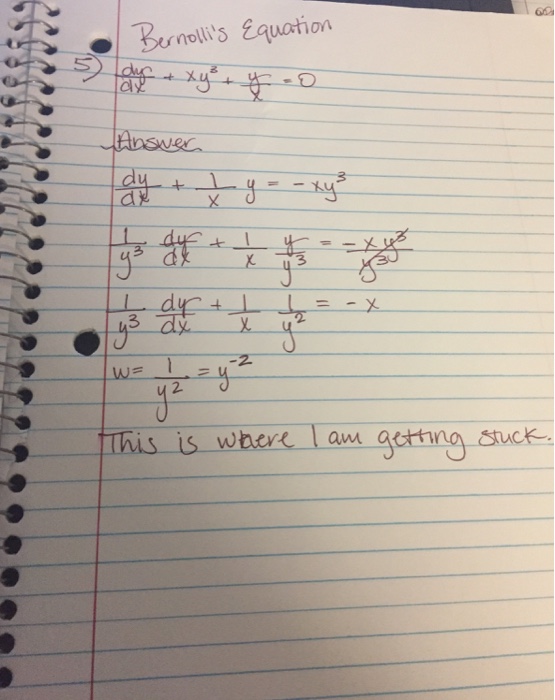 Bernolli's Equation
5) dy/dx + xy³ + y/x = 0
Answer
dy/dx + 1/x y = -xy³
1/y³ dy/dx + 1/x y/y³ = -xy³/y³
1/y³ dy/dx + 1/x 1/y² = -x
w = 1/y² = y⁻²
This is where I am getting stuck.